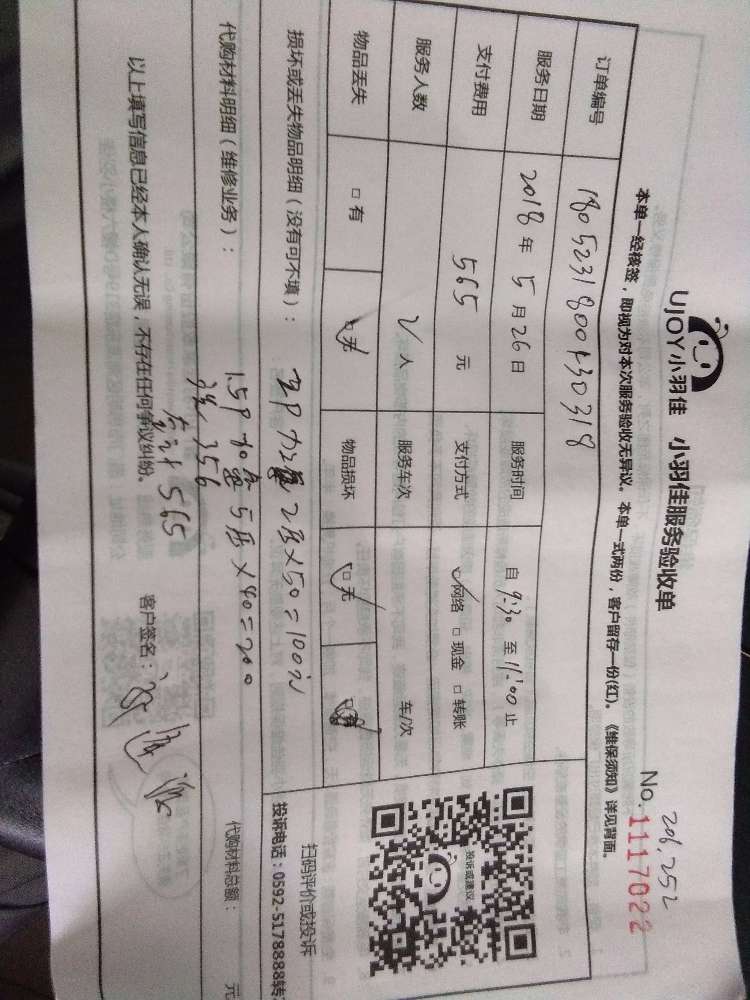 UJOY小羽佳 小羽佳服务验收单
206.252
No. 1117022
本单一经核签，即视为对本次服务验收无异议。本单一式两份，客户留存一份(红)。《维保须知》详见背面。
订单编号
服务日期 2018 年 5 月 26 日 服务时间 自 9:30 至 11:00 止
支付费用 565 元 支付方式 ☑网络 □现金 □转账
服务人数 2 人 服务车次 车/次
物品丢失 □有 ☑无 物品损坏 ☑无
损坏或丢失物品明细（没有可不填）：
2房×50=100
代购材料明细（维修业务）：
1.5P 加氟 5房×40=200
356
合计565
代购材料总额： 元
扫码评价或投诉
投诉电话：0592-5178888转
投诉或建议
以上填写信息已经本人确认无误，不存在任何争议纠纷。
客户签名：